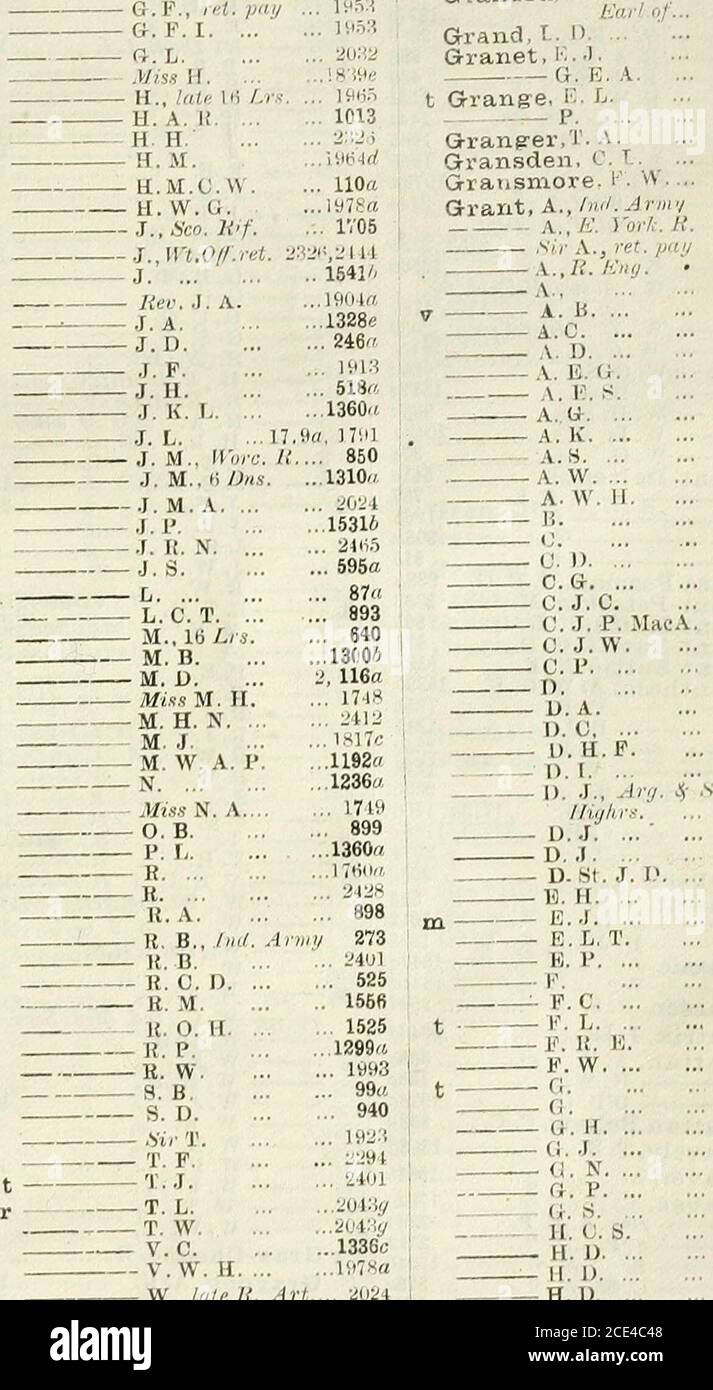 G. F., ret. pay ... 1953
G. F. I. ... ... 1953
G. L. ... ... 2032
Miss H. ... ... 1839e
H., late 16 Lrs. ... 1965
H. A. R. ... ... 1013
H. H. ... ... 2326
H. M. ... 1964d
H. M. C. W. ... 110a
H. W. G. ... 1978a
J., Sco. Rif. ... 1705
J., Wt. Off. ret. 2326, 2444
J. ... ... .. 1541b
Rev. J. A. ... 1904a
J. A. ... ... 1328e
J. D. ... ... 246a
J. F. ... ... 1913
J. H. ... ... 518a
J. K. L. ... ... 1360a
J. L. ... 1791
J. M., Worc. R.... 850
J. M., 6 Dns. ... 1310a
J. M. A. ... ... 2024
J. P. ... ... 1531b
J. R. N. ... ... 2465
J. S. ... ... 595a
L. ... ... ... 87a
L. C. T. ... ... 893
M., 16 Lrs. ... 640
M. B. ... ... 1300b
M. D. ... 2, 116a
Miss M. H. ... 1748
M. H. N. ... ... 2412
M. J. ... ... 1817c
M. W. A. P. ... 1192a
N. ... ... ... 1236a
Miss N. A.... ... 1749
O. B. ... ... 899
P. L. ... ... 1360a
R. ... ... ... 1760a
R. ... ... ... 2428
R. A. ... ... 898
R. B., Ind. Army 273
R. B. ... ... 2401
R. C. D. ... ... 525
R. M. ... .. 1556
R. O. H. ... ... 1525
R. P. ... ... 1299a
R. W. ... ... 1993
S. B. ... ... 99a
S. D. ... ... 940
Sir T. ... ... 1923
T. F. ... ... 2294
t T. J. ... ... 2401
r T. L. ... ... 2043g
T. W. ... ... 2043g
V. C. ... ... 1336c
V. W. H. ... ... 1978a
W. late R. Art. ... 2024
Earl of...
Grand, L. D. ... ...
Granet, E. J. ...
G. E. A. ...
t Grange, E. L. ...
P. ... ...
Granger, T. A. ...
Gransden, C. T. ...
Gransmore, F. W. ...
Grant, A., Ind. Army
A., E. York. R.
Sir A., ret. pay
A., R. Eng. •
A., ... ...
v A. B. ... ...
A. C. ... ...
A. D. ... ...
A. E. G. ...
A. E. S. ...
A. G. ... ...
A. K. ... ...
A. S. ... ...
A. W. ... ...
A. W. H. ...
B. ... ...
C. ... ...
C. D. ... ...
C. G. ... ...
C. J. C. ...
C. J. P. MacA.
C. J. W. ...
C. P. ... ...
D. ... ..
D. A. ...
D. C. ... ...
D. H. F. ...
D. I. ... ...
D. J., Arg. & S
Highrs. ...
D. J. ... ...
D. J. ... ...
D. St. J. D. ...
E. H. ... ...
m E. J. ... ...
E. L. T. ...
E. P. ... ...
F. ... ...
F. C. ... ...
t F. L. ... ...
F. R. E. ...
F. W. ... ...
t G. ... ...
G. ... ...
G. H. ... ...
G. J. ... ...
G. N. ... ...
G. P. ... ...
G. S. ... ...
H. C. S. ...
H. D. ... ...
H. D. ... ...
H. D. ... ...
alamy
Image ID: 2CE4C48
www.alamy.com